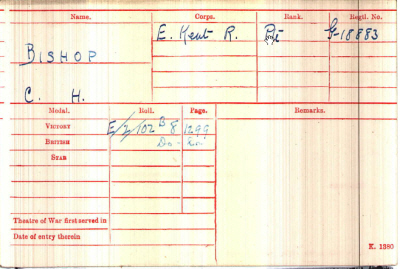 Name. Corps. Rank. Regtl. No.
BISHOP E. Kent R. Pte G-18883
C. H.
Medal. Roll. Page. Remarks.
VICTORY E/2/102 B 8 1299
BRITISH Do- Do
STAR
Theatre of War first served in
Date of entry therein
K. 1380